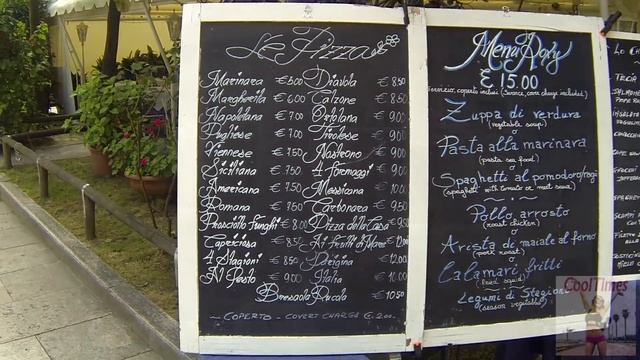 Le Pizza
Marinara €5.00 Diavola €8.50
Margherita €6.00 Calzone €8.50
Napoletana €7.00 Ortolana €9.00
Pugliese €7.00 Tirolese €9.00
Viennese €7.50 Nostromo €9.00
Siciliana €7.50 4 formaggi €9.00
Americana €7.50 Messicana €10.00
Romana €7.50 Carbonara €9.50
Prosciutto funghi €8.00 Pizza della Casa €9.50
Capricciosa €8.50 Ai frutti di Mare €12.00
4 Stagioni €8.50 Porcina €12.00
Al Pesto €9.00 Italia €10.00
Bresaola Rucola €10.50
~ COPERTO - COVERT CHARGE €.2.00.
Menu
€ 15.00
Servizio, coperto inclusi (Service, cover charge included)
Zuppa di verdura
(vegetable soup)
o
Pasta alla marinara
(pasta sea food)
o
Spaghetti al pomodoro/ragù
(spaghetti with tomato or meat sauce)
~ ~ ~
Pollo arrosto
(roast chicken)
o
Arista di maiale al forno
(pork roast)
o
Calamari fritti
(fried squid)
Legumi di Stagione
(season vegetable)
CoolTimes